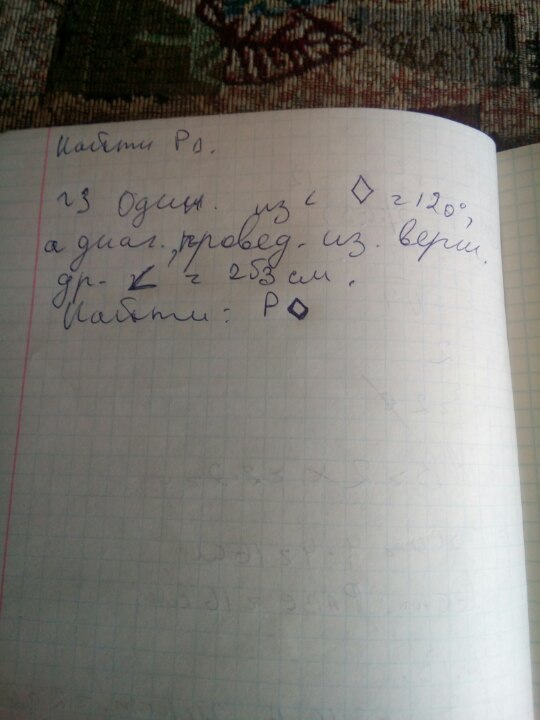 Найти Р△.
√3 Один. из < ◇ = 120°,
а диаг., провед. из. верш.
др. ∠ = 253 см.
Найти: Р ◇